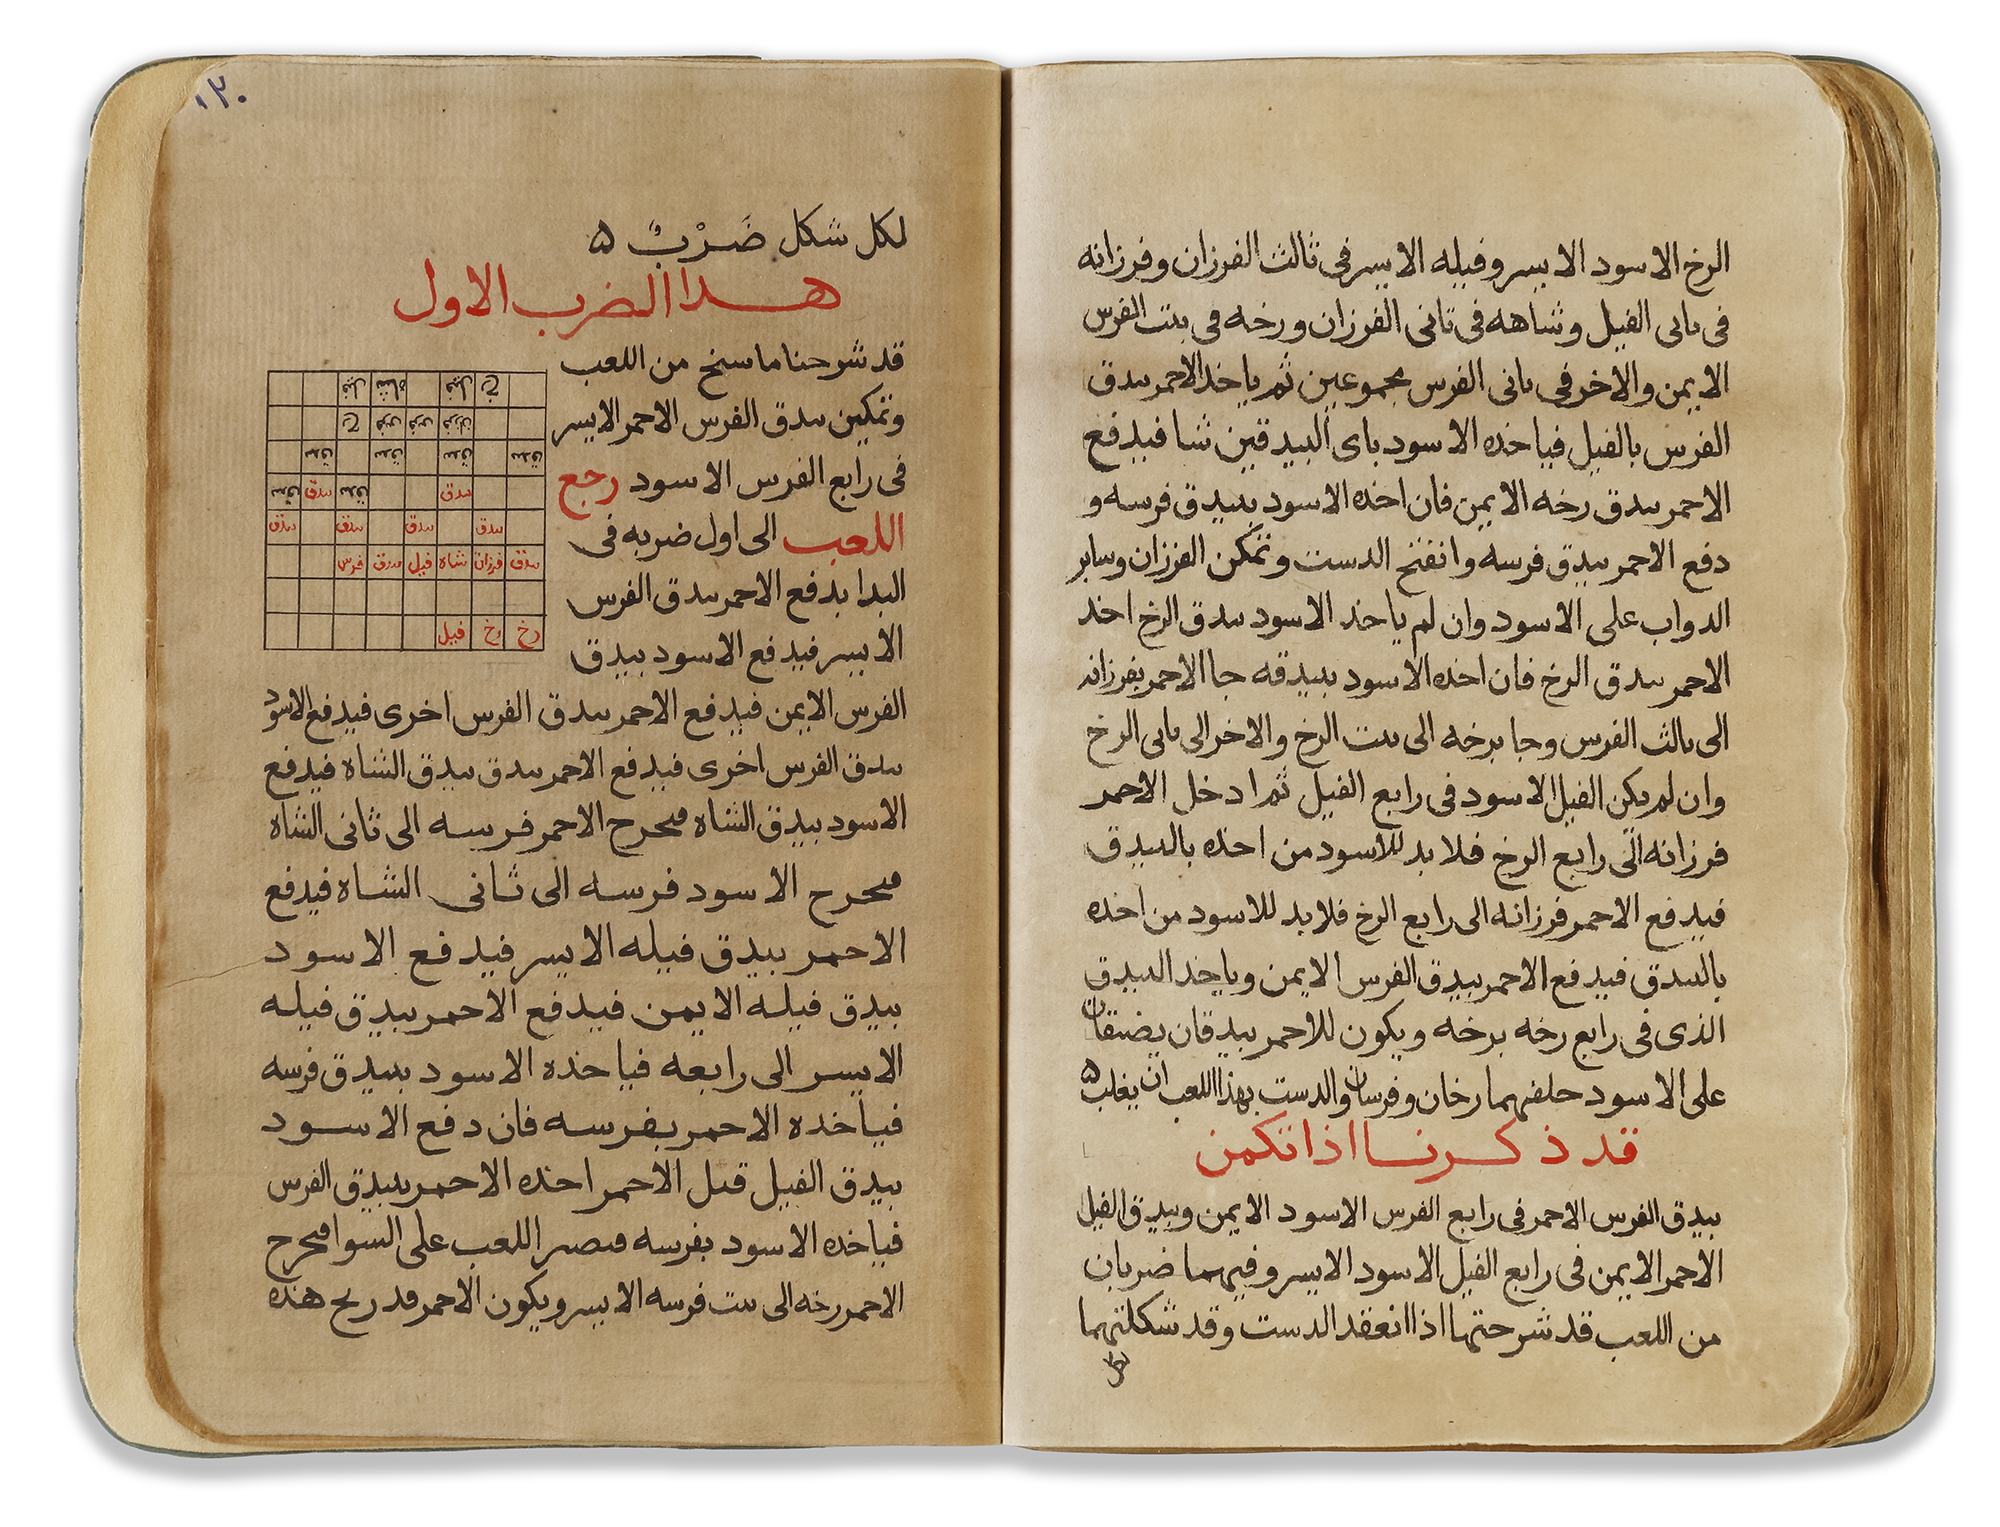 الرخ الاسود الايسر وفيله الايسر فى ثالث الفرزان وفرزانه
فى ثانى الفيل وشاهه فى ثانى الفرزان ورخه فى بيت الفرس
الايمن والاخر فى ثانى الفرس مجموعين ثم ياخد الاحمر بيدق
الفرس بالفيل فياخذه الاسود باى البيدقين شا فيدفع
الاحمر بيدق رخه الايمن فان اخذه الاسود ببيدق فرسه و
دفع الاحمر بيدق فرسه وانفتح الدست وتمكن الفرزان وساير
الدواب على الاسود وان لم ياخد الاسود بيدق الرخ اخد
الاحمر بيدق الرخ فان اخذه الاسود ببيدقه جا الاحمر بفرزانه
الى ثالث الفرس وجا برخه الى بيت الرخ والاخر الى ثانى الرخ
وان لم يكن الفيل الاسود فى رابع الفيل ثم ادخل الاحمر
فرزانه الى رابع الرخ فلا بد للاسود من اخذه بالبيدق
فيدفع الاحمر فرزانه الى رابع الرخ فلا بد للاسود من اخذه
بالبيدق فيدفع الاحمر بيدق الفرس الايمن وياخد البيدق
الذى فى رابع رخه برخه ويكون للاحمر بيدقان يضيقان
على الاسود خلفهما رخان وفرسان والدست بهذا اللعب ان يغلب ۵
قد ذكرنا اذا تكمن
بيدق الفرس الاحمر فى رابع الفرس الاسود الايمن وبيدق الفيل
الاحمر الايمن فى رابع الفيل الاسود الايسر وفيهما ضربان
من اللعب قد شرحتها اذا انعقد الدست وقد شكلتهما
لكل
١٢٠
لكل شكل ضَرْبٌ ۵
هدا الضرب الاول
قد شرحنا ما سنح من اللعب
وتمكين بيدق الفرس الاحمر الايسر
فى رابع الفرس الاسود رجع
اللعب الى اول ضربه فى
البدا بدفع الاحمر بيدق الفرس
الايسر فيدفع الاسود بيدق
الفرس الايمن فيدفع الاحمر بيدق الفرس اخرى فيدفع الاسود
بيدق الفرس اخرى فيدفع الاحمر بيدق بيدق الشاه فيدفع
الاسود بيدق الشاه فيخرج الاحمر فرسه الى ثانى الشاه
فيخرج الاسود فرسه الى ثانى الشاه فيدفع
الاحمر بيدق فيله الايسر فيدفع الاسود
بيدق فيله الايمن فيدفع الاحمر بيدق فيله
الايسر الى رابعه فياخذه الاسود ببيدق فرسه
فياخذه الاحمر بفرسه فان دفع الاسود
بيدق الفيل قبل الاحمر اخذه الاحمر ببيدق الفرس
فياخذه الاسود بفرسه فيصير اللعب على السوا فيخرج
الاحمر رخه الى بيت فرسه الايسر ويكون الاحمر قد ربح هذه
فيل شاه فيل رخ
رخ فرس فرس فرزان
بيدق بيدق بيدق بيدق
بيدق بيدق بيدق بيدق
بيدق بيدق بيدق بيدق
فرس بيدق فيل شاه فرزان بيدق
فيل رخ رخ